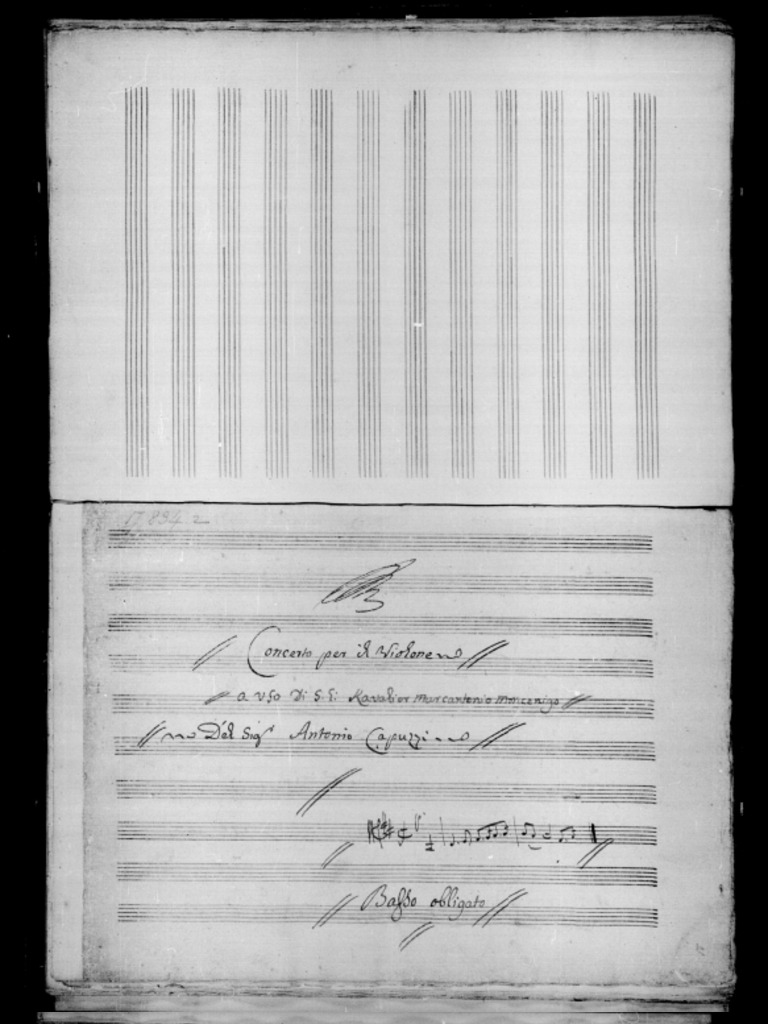 17.834.2
Concerto per il Violone
a uso Di S. E. Kavalier Marcantonio Mocenigo
Del Sigr Antonio Capuzzi
Baßo obligato